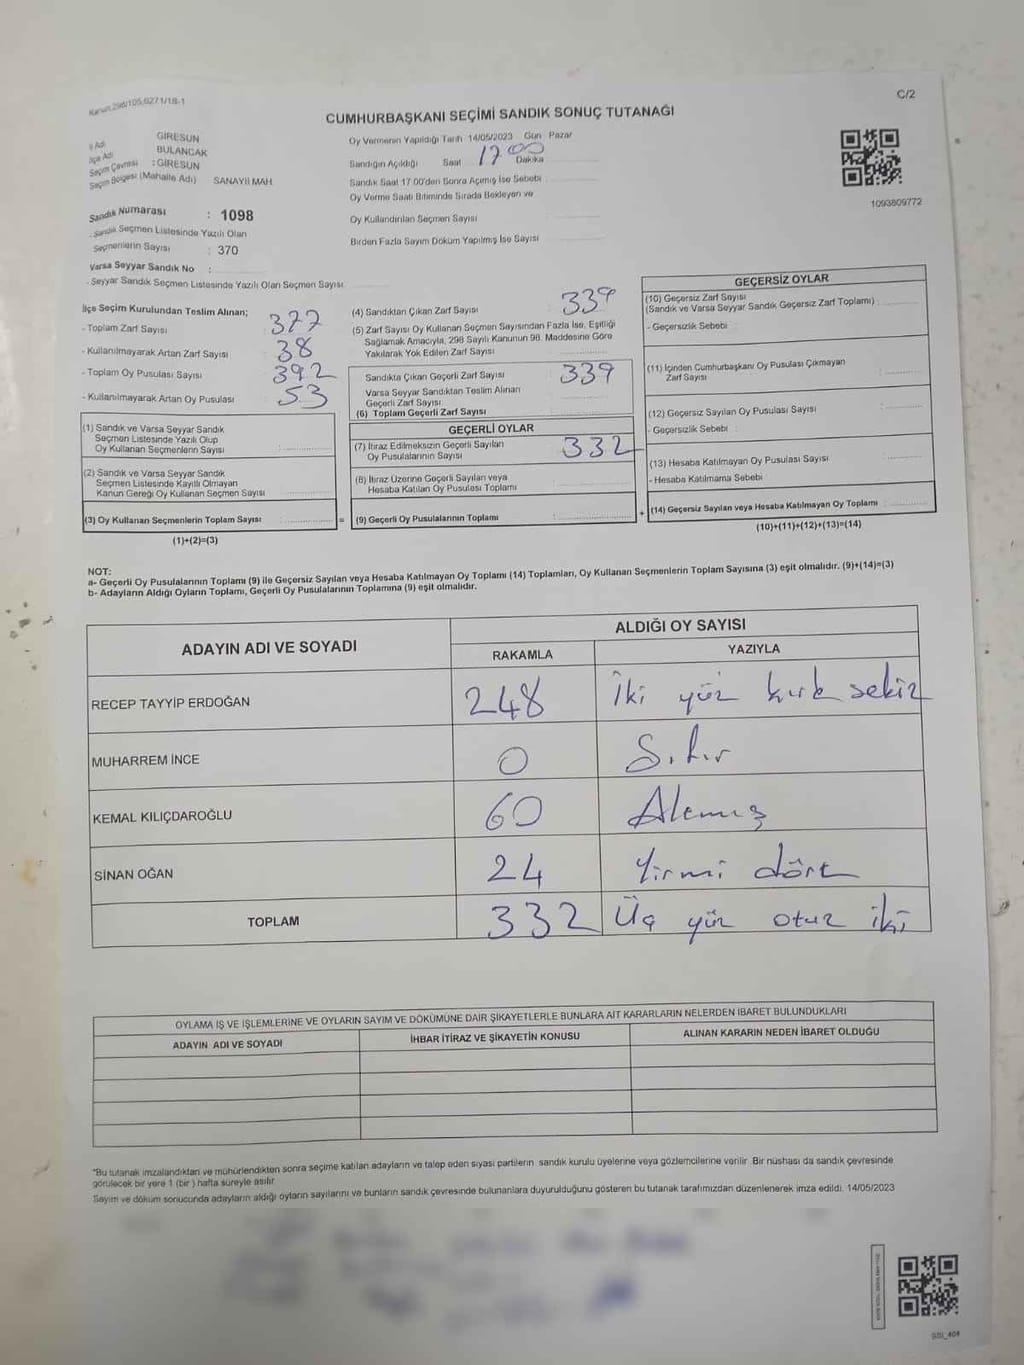 Kanun:298/105,6271/18-1
C/2
CUMHURBAŞKANI SEÇİMİ SANDIK SONUÇ TUTANAĞI
İl Adı GİRESUN
İlçe Adı BULANCAK
Seçim Çevresi : GİRESUN
Seçim Bölgesi (Mahalle Adı) SANAYİİ MAH.
Sandık Numarası : 1098
- Sandık Seçmen Listesinde Yazılı Olan
Seçmenlerin Sayısı : 370
Varsa Seyyar Sandık No :
- Seyyar Sandık Seçmen Listesinde Yazılı Olan Seçmen Sayısı
Oy Vermenin Yapıldığı Tarih 14/05/2023 Gün Pazar
Sandığın Açıldığı Saat 17 00 Dakika
Sandık Saat 17.00'den Sonra Açımış İse Sebebi
Oy Verme Saati Bitiminde Sırada Bekleyen ve
Oy Kullandırılan Seçmen Sayısı
Birden Fazla Sayım Döküm Yapılmış İse Sayısı
1093809772
İlçe Seçim Kurulundan Teslim Alınan;
- Toplam Zarf Sayısı 377
- Kullanılmayarak Artan Zarf Sayısı 38
- Toplam Oy Pusulası Sayısı 392
- Kullanılmayarak Artan Oy Pusulası 53
(1) Sandık ve Varsa Seyyar Sandık
Seçmen Listesinde Yazılı Olup
Oy Kullanan Seçmenlerin Sayısı
(2) Sandık ve Varsa Seyyar Sandık
Seçmen Listesinde Kayıtlı Olmayan
Kanun Gereği Oy Kullanan Seçmen Sayısı
(3) Oy Kullanan Seçmenlerin Toplam Sayısı =
(1)+(2)=(3)
(4) Sandıktan Çıkan Zarf Sayısı 339
(5) Zarf Sayısı Oy Kullanan Seçmen Sayısından Fazla İse, Eşitliği
Sağlamak Amacıyla, 298 Sayılı Kanunun 98. Maddesine Göre
Yakılarak Yok Edilen Zarf Sayısı
Sandıkta Çıkan Geçerli Zarf Sayısı 339
Varsa Seyyar Sandıktan Teslim Alınan
Geçerli Zarf Sayısı
(6) Toplam Geçerli Zarf Sayısı
GEÇERLİ OYLAR
(7) İtiraz Edilmeksizin Geçerli Sayılan
Oy Pusulalarının Sayısı 332
(8) İtiraz Üzerine Geçerli Sayılan veya
Hesaba Katılan Oy Pusulası Toplamı
(9) Geçerli Oy Pusulalarının Toplamı +
GEÇERSİZ OYLAR
(10) Geçersiz Zarf Sayısı
(Sandık ve Varsa Seyyar Sandık Geçersiz Zarf Toplamı) :
- Geçersizlik Sebebi :
(11) İçinden Cumhurbaşkanı Oy Pusulası Çıkmayan
Zarf Sayısı
(12) Geçersiz Sayılan Oy Pusulası Sayısı
- Geçersizlik Sebebi :
(13) Hesaba Katılmayan Oy Pusulası Sayısı
- Hesaba Katılmama Sebebi
(14) Geçersiz Sayılan veya Hesaba Katılmayan Oy Toplamı
(10)+(11)+(12)+(13)=(14)
NOT:
a- Geçerli Oy Pusulalarının Toplamı (9) ile Geçersiz Sayılan veya Hesaba Katılmayan Oy Toplamı (14) Toplamları, Oy Kullanan Seçmenlerin Toplam Sayısına (3) eşit olmalıdır. (9)+(14)=(3)
b- Adayların Aldığı Oyların Toplamı, Geçerli Oy Pusulalarının Toplamına (9) eşit olmalıdır.
ADAYIN ADI VE SOYADI
ALDIĞI OY SAYISI
RAKAMLA YAZIYLA
RECEP TAYYİP ERDOĞAN 248 İki yüz kırk sekiz
MUHARREM İNCE 0 Sıfır
KEMAL KILIÇDAROĞLU 60 Altmış
SİNAN OĞAN 24 Yirmi dört
TOPLAM 332 Üç yüz otuz iki
OYLAMA İŞ VE İŞLEMLERİNE VE OYLARIN SAYIM VE DÖKÜMÜNE DAİR ŞİKAYETLERLE BUNLARA AİT KARARLARIN NELERDEN İBARET BULUNDUKLARI
ADAYIN ADI VE SOYADI İHBAR İTİRAZ VE ŞİKAYETİN KONUSU ALINAN KARARIN NEDEN İBARET OLDUĞU
"Bu tutanak imzalandıktan ve mühürlendikten sonra seçime katılan adayların ve talep eden siyasi partilerin sandık kurulu üyelerine veya gözlemcilerine verilir. Bir nüshası da sandık çevresinde
görülecek bir yere 1 (bir) hafta süreyle asılır.
Sayım ve döküm sonucunda adayların aldığı oyların sayılarını ve bunların sandık çevresinde bulunanlara duyurulduğunu gösteren bu tutanak tarafımızdan düzenlenerek imza edildi. 14/05/2023